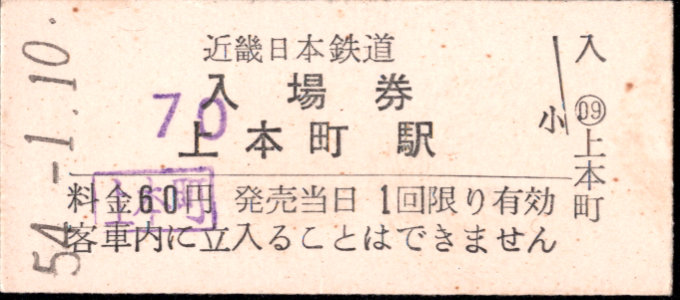 近畿日本鉄道
入場券
70
上本町駅
料金60円 発売当日1回限り有効
客車内に立入ることはできません
上本町
54.-1.10.
小
入
09
上本町